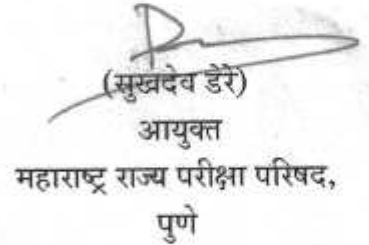 (सुखदेव डेरे)
आयुक्त
महाराष्ट्र राज्य परीक्षा परिषद,
पुणे